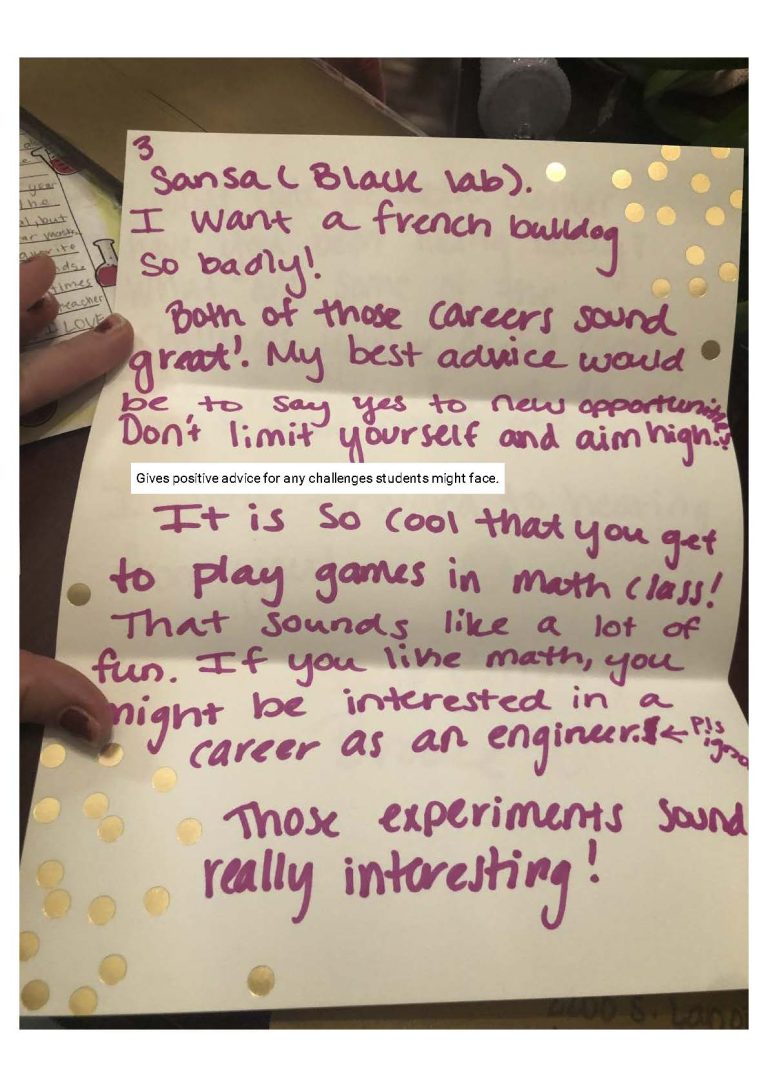 3
Sansa ( Black lab).
I want a french bulldog
so badly!
Both of those careers sound
great! My best advice would
be, to say yes to new opportunities.
Don't limit yourself and aim high!!
Gives positive advice for any challenges students might face.
It is so cool that you get
to play games in math class!
That sounds like a lot of
fun. If you like math, you
might be interested in a
career as an engineer. ← Pls
Those experiments sound
really interesting!
year
but
times
teacher
LOVE